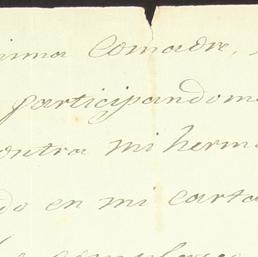 isima Comadre,
participandome
contra mi herm
do en mi carta